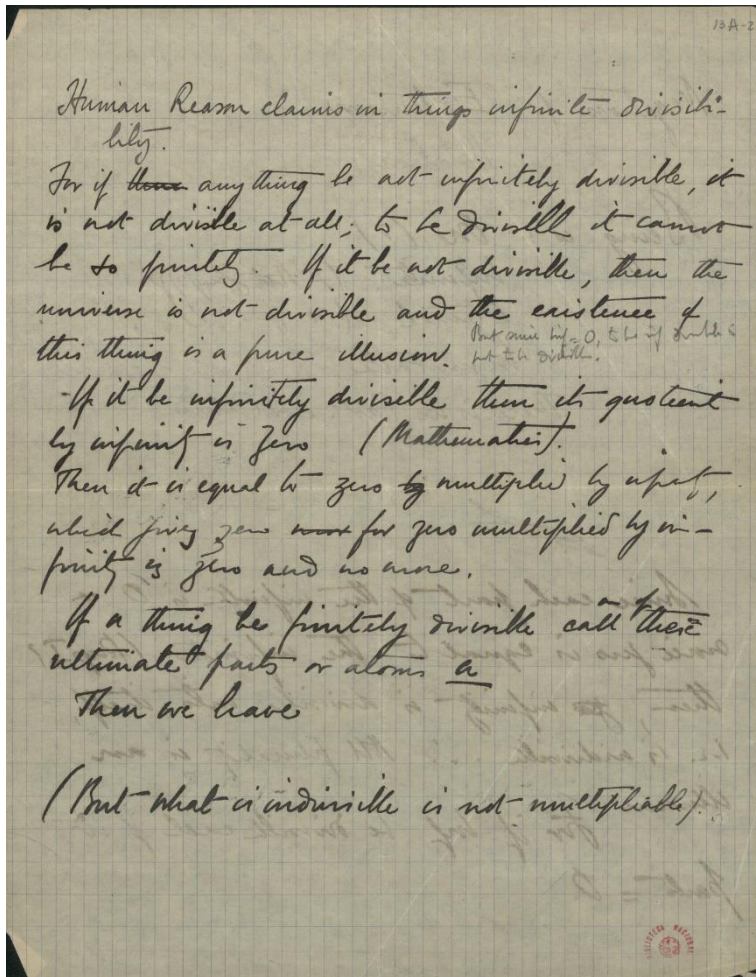 13A-2
Human Reason claims in things infinite divisibi-
lity.
For if there anything be not infinitely divisible, it
is not divisible at all; to be divisible it cannot
be so finitely. If it be not divisible, then the
universe is not divisible and the existence of
this thing is a pure illusion.
But since inf = 0, to be inf divisible is
not to be divisible.
- If it be infinitely divisible then its quotient
by infinity is zero (Mathematics).
Then it is equal to zero by multiplied by infinity,
which gives zero for zero multiplied by in-
finity is zero and no more.
If a thing be finitely divisible call one of these
ultimate parts or atoms a
Then we have
(But what is indivisible is not multipliable).
BIBLIOTECA NACIONAL